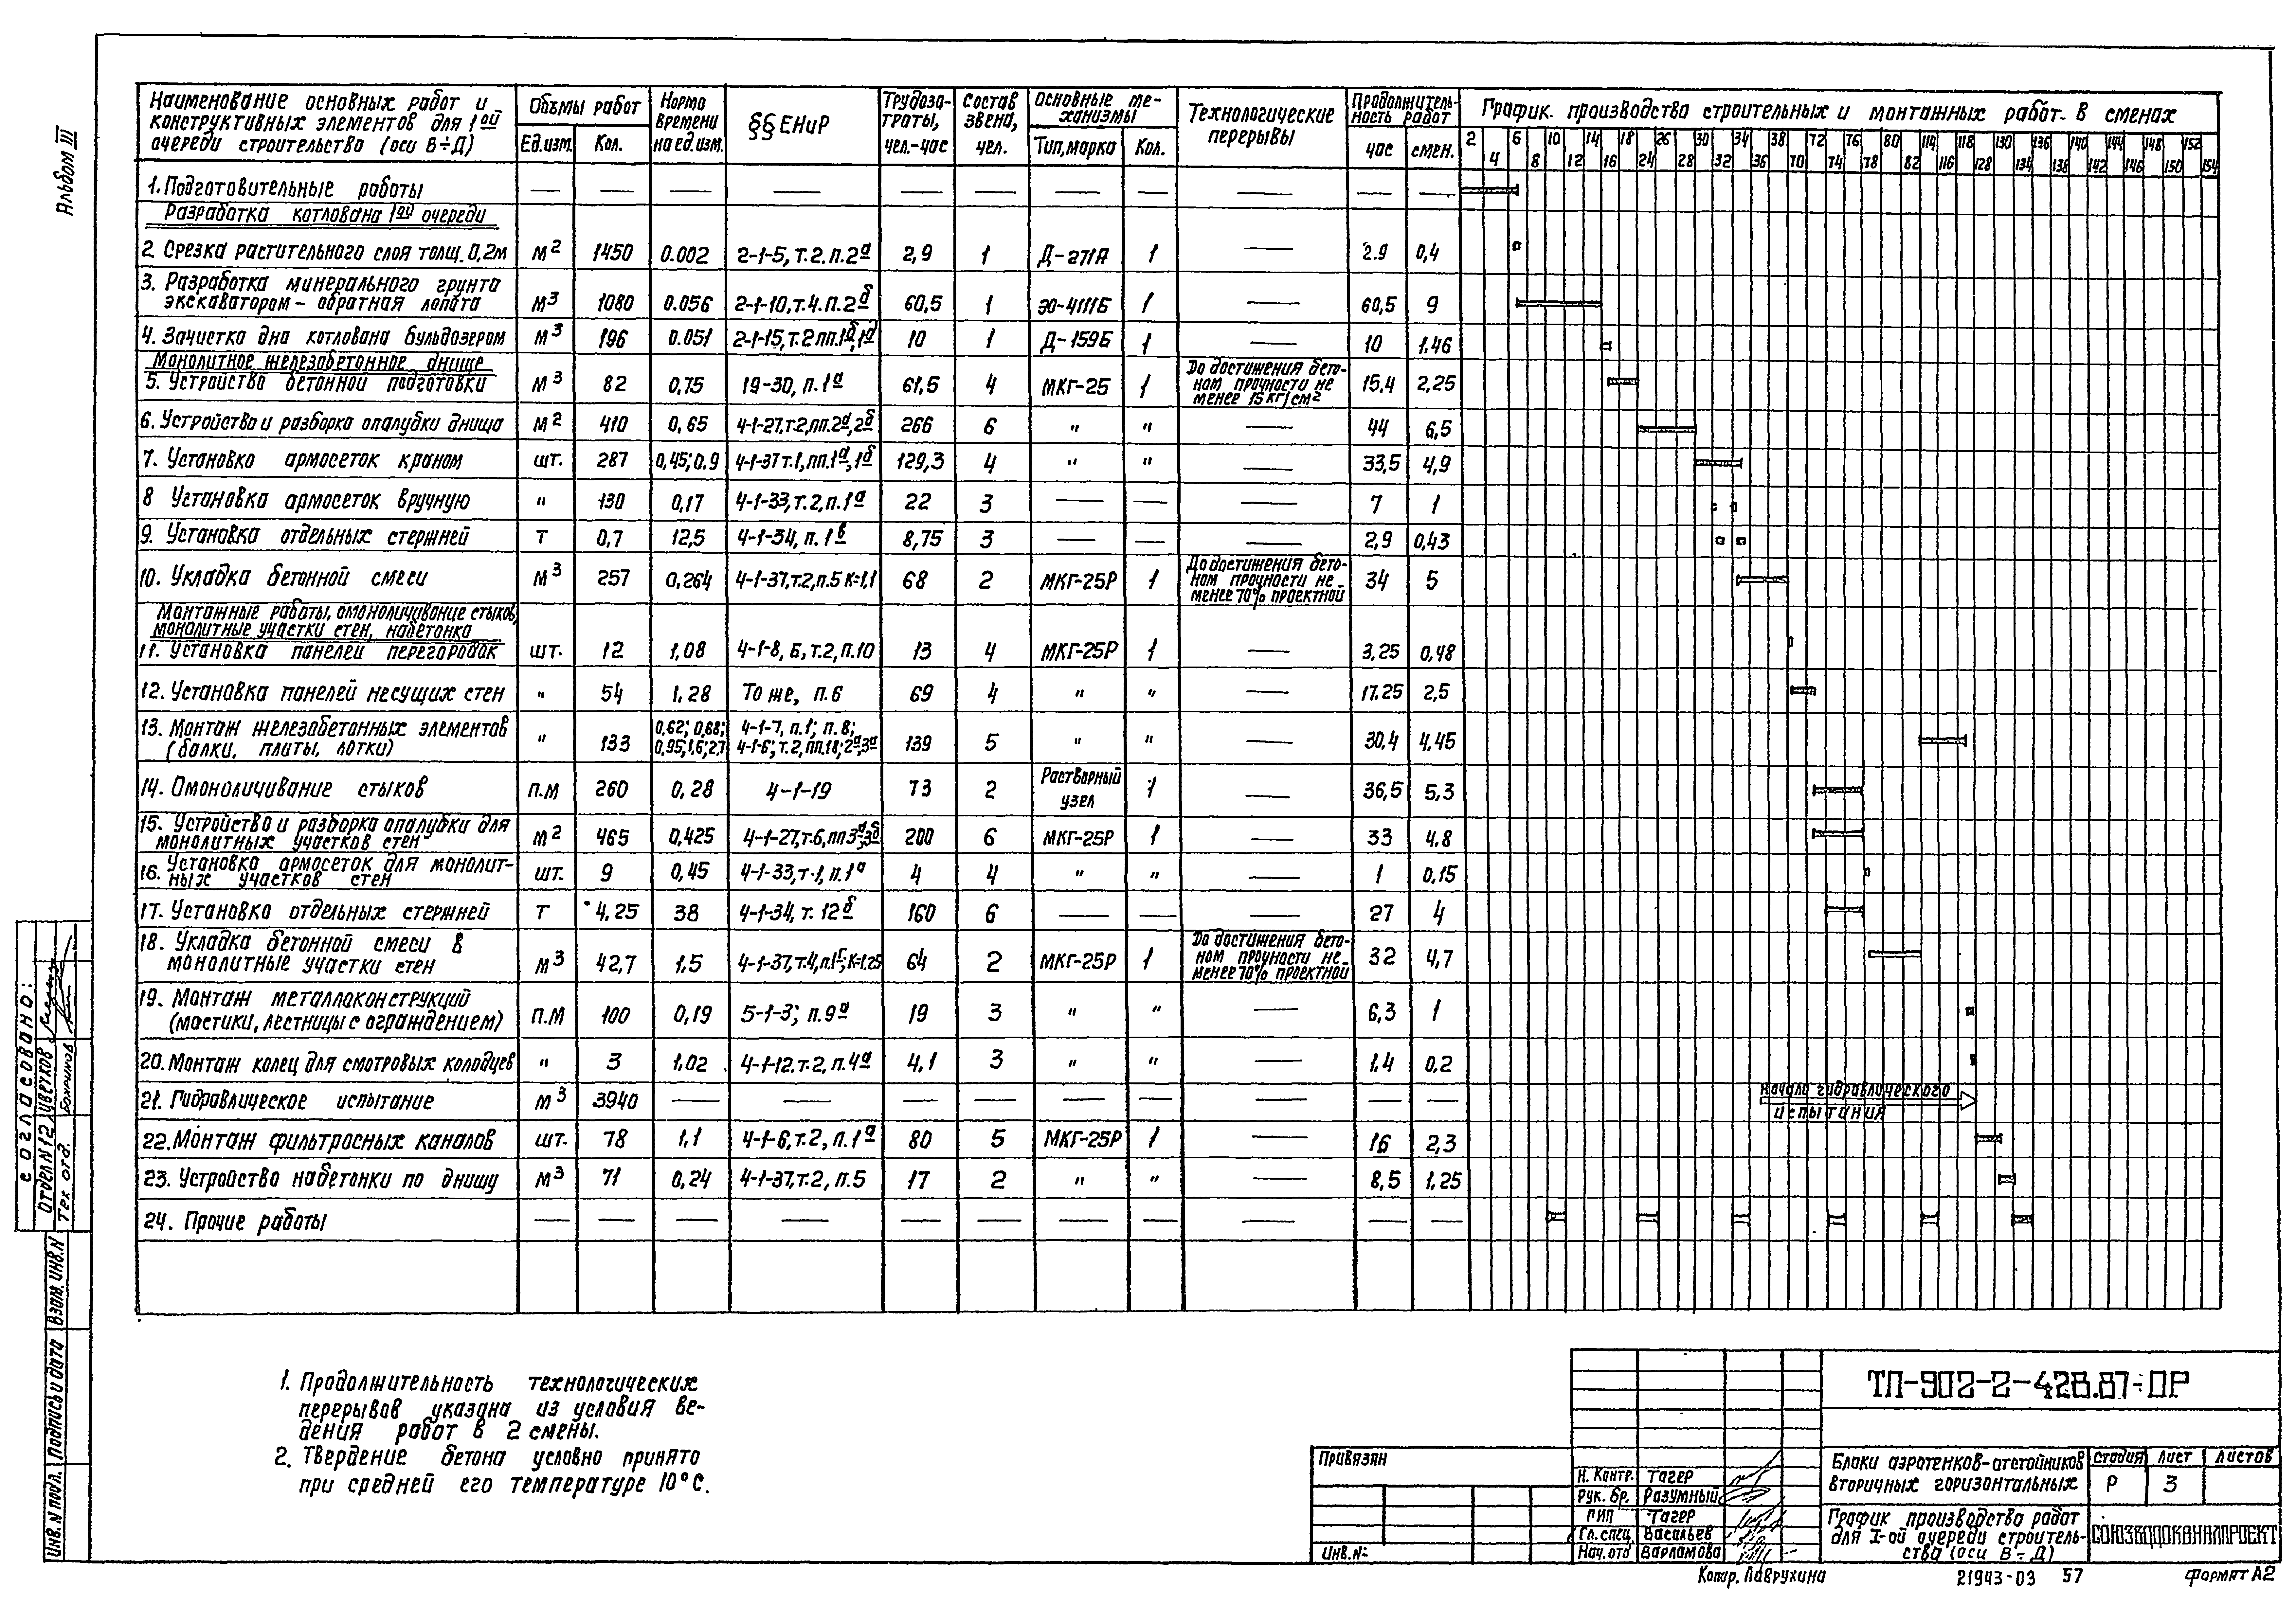 Альбом III
Наименование основных работ и
конструктивных элементов для 1ой
очереди строительства (оси В÷Д)
Объмы работ
Ед.изм.
Кол.
Норма
времени
на ед.изм.
§§ ЕНиР
Трудоза-
траты,
чел.-час
Состав
звена,
чел.
Основные ме-
ханизмы
Тип, марка
Кол.
Технологические
перерывы
Продолжитель-
ность работ
час
смен.
График производства строительных и монтажных работ в сменах
2 6 10 14 18 26 30 34 38 72 76 80 114 118 130 136 140 144 148 152
4 8 12 16 24 28 32 36 70 74 78 82 116 128 134 138 142 146 150 154
1. Подготовительные работы — — — — — — — — — — —
Разработка котлована 1ой очереди
2. Срезка растительного слоя толщ. 0,2м м2 1450 0.002 2-1-5, т.2. п.2а 2,9 1 Д-271А 1 — 2.9 0,4
3. Разработка минерального грунта
экскаватором - обратная лопата м3 1080 0.056 2-1-10, т.4. п.2б 60,5 1 ЭО-4111Б 1 — 60,5 9
4. Зачистка дна котлована бульдозером м3 196 0.051 2-1-15, т.2 пп.1б,1д 10 1 Д-159Б 1 — 10 1.46
Монолитное железобетонное днище
5. Устройство бетонной подготовки м3 82 0,75 19-30, п.1а 61,5 4 МКГ-25 1 До достижения бето-
ном прочности не
менее 15 кг/см2 15,4 2,25
6. Устройство и разборка опалубки днища м2 410 0,65 4-1-27, т.2, пп.2а,2б 266 6 " " — 44 6,5
7. Установка армосеток краном шт. 287 0,45; 0.9 4-1-37 т.1, пп.1а,1б 129,3 4 " " — 33,5 4,9
8 Установка армосеток вручную " 130 0,17 4-1-33, т.2, п.1а 22 3 — — — 7 1
9. Установка отдельных стержней т 0,7 12,5 4-1-34, п.1в 8,75 3 — — — 2,9 0,43
10. Укладка бетонной смеси м3 257 0,264 4-1-37, т.2, п.5 К=1,1 68 2 МКГ-25Р 1 До достижения бето-
ном прочности не
менее 70% проектной 34 5
Монтажные работы, омоноличивание стыков,
монолитные участки стен, набетонка
11. Установка панелей перегородок шт. 12 1,08 4-1-8, Б, т.2, п.10 13 4 МКГ-25Р 1 — 3,25 0,48
12. Установка панелей несущих стен " 54 1,28 То же, п.6 69 4 " " — 17.25 2,5
13. Монтаж железобетонных элементов
(балки, плиты, лотки) " 133 0,62; 0,88;
0,95; 1,6; 2,7 4-1-7, п.1; п.8;
4-1-6; т.2, пп.18; 2а;3а 139 5 " " — 30,4 4,45
14. Омоноличивание стыков п.м 260 0,28 4-1-19 73 2 Растворный
узел 1 — 36,5 5,3
15. Устройство и разборка опалубки для
монолитных участков стен м2 465 0,425 4-1-27, т.6, пп 3а;3б 200 6 МКГ-25Р 1 — 33 4.8
16. Установка армосеток для монолит-
ных участков стен шт. 9 0,45 4-1-33, т.1, п.1а 4 4 " " — 1 0,15
17. Установка отдельных стержней т 4,25 38 4-1-34, т. 12б 160 6 — — — 27 4
18. Укладка бетонной смеси в
монолитные участки стен м3 42,7 1,5 4-1-37, т.4, п.1б; К=1,25 64 2 МКГ-25Р 1 До достижения бето-
ном прочности не
менее 70% проектной 32 4,7
19. Монтаж металлоконструкций
(мостики, лестницы с ограждением) п.м 100 0,19 5-1-3; п.9а 19 3 " " — 6,3 1
20. Монтаж колец для смотровых колодцев " 3 1,02 4-1-12. т.2, п.4а 4,1 3 " " — 1.4 0,2
21. Гидравлическое испытание м3 3940 — — — — — — — — —
Начало гидравлического
испытания
22. Монтаж фильтросных каналов шт. 78 1,1 4-1-6, т.2, п.1а 80 5 МКГ-25Р 1 — 16 2,3
23. Устройство набетонки по днищу м3 71 0,24 4-1-37, т.2, п.5 17 2 " " — 8,5 1,25
24. Прочие работы — — — — — — — — — — —
1. Продолжительность технологических
перерывов указана из условия ве-
дения работ в 2 смены.
2. Твердение бетона условно принято
при средней его температуре 10°С.
Согласовано:
Отдел N12 Цветков
Тех отд.
Инв. N подл. Подпись и дата Взам. инв. N
Привязан
Инв. N:
Н. Контр. Тагер
Рук. бр. Разумный
ГИП Тагер
Гл. спец. Васильев
Нач. отд Варламова
ТП-902-2-428.87-ОР
Блоки аэротенков-отстойников
вторичных горизонтальных
Стадия Лист Листов
Р 3
График производства работ
для I-ой очереди строитель-
ства (оси В÷Д)
СОЮЗВОДОКАНАЛПРОЕКТ
Копир. Лаврухина
21943-03 57
Формат А2